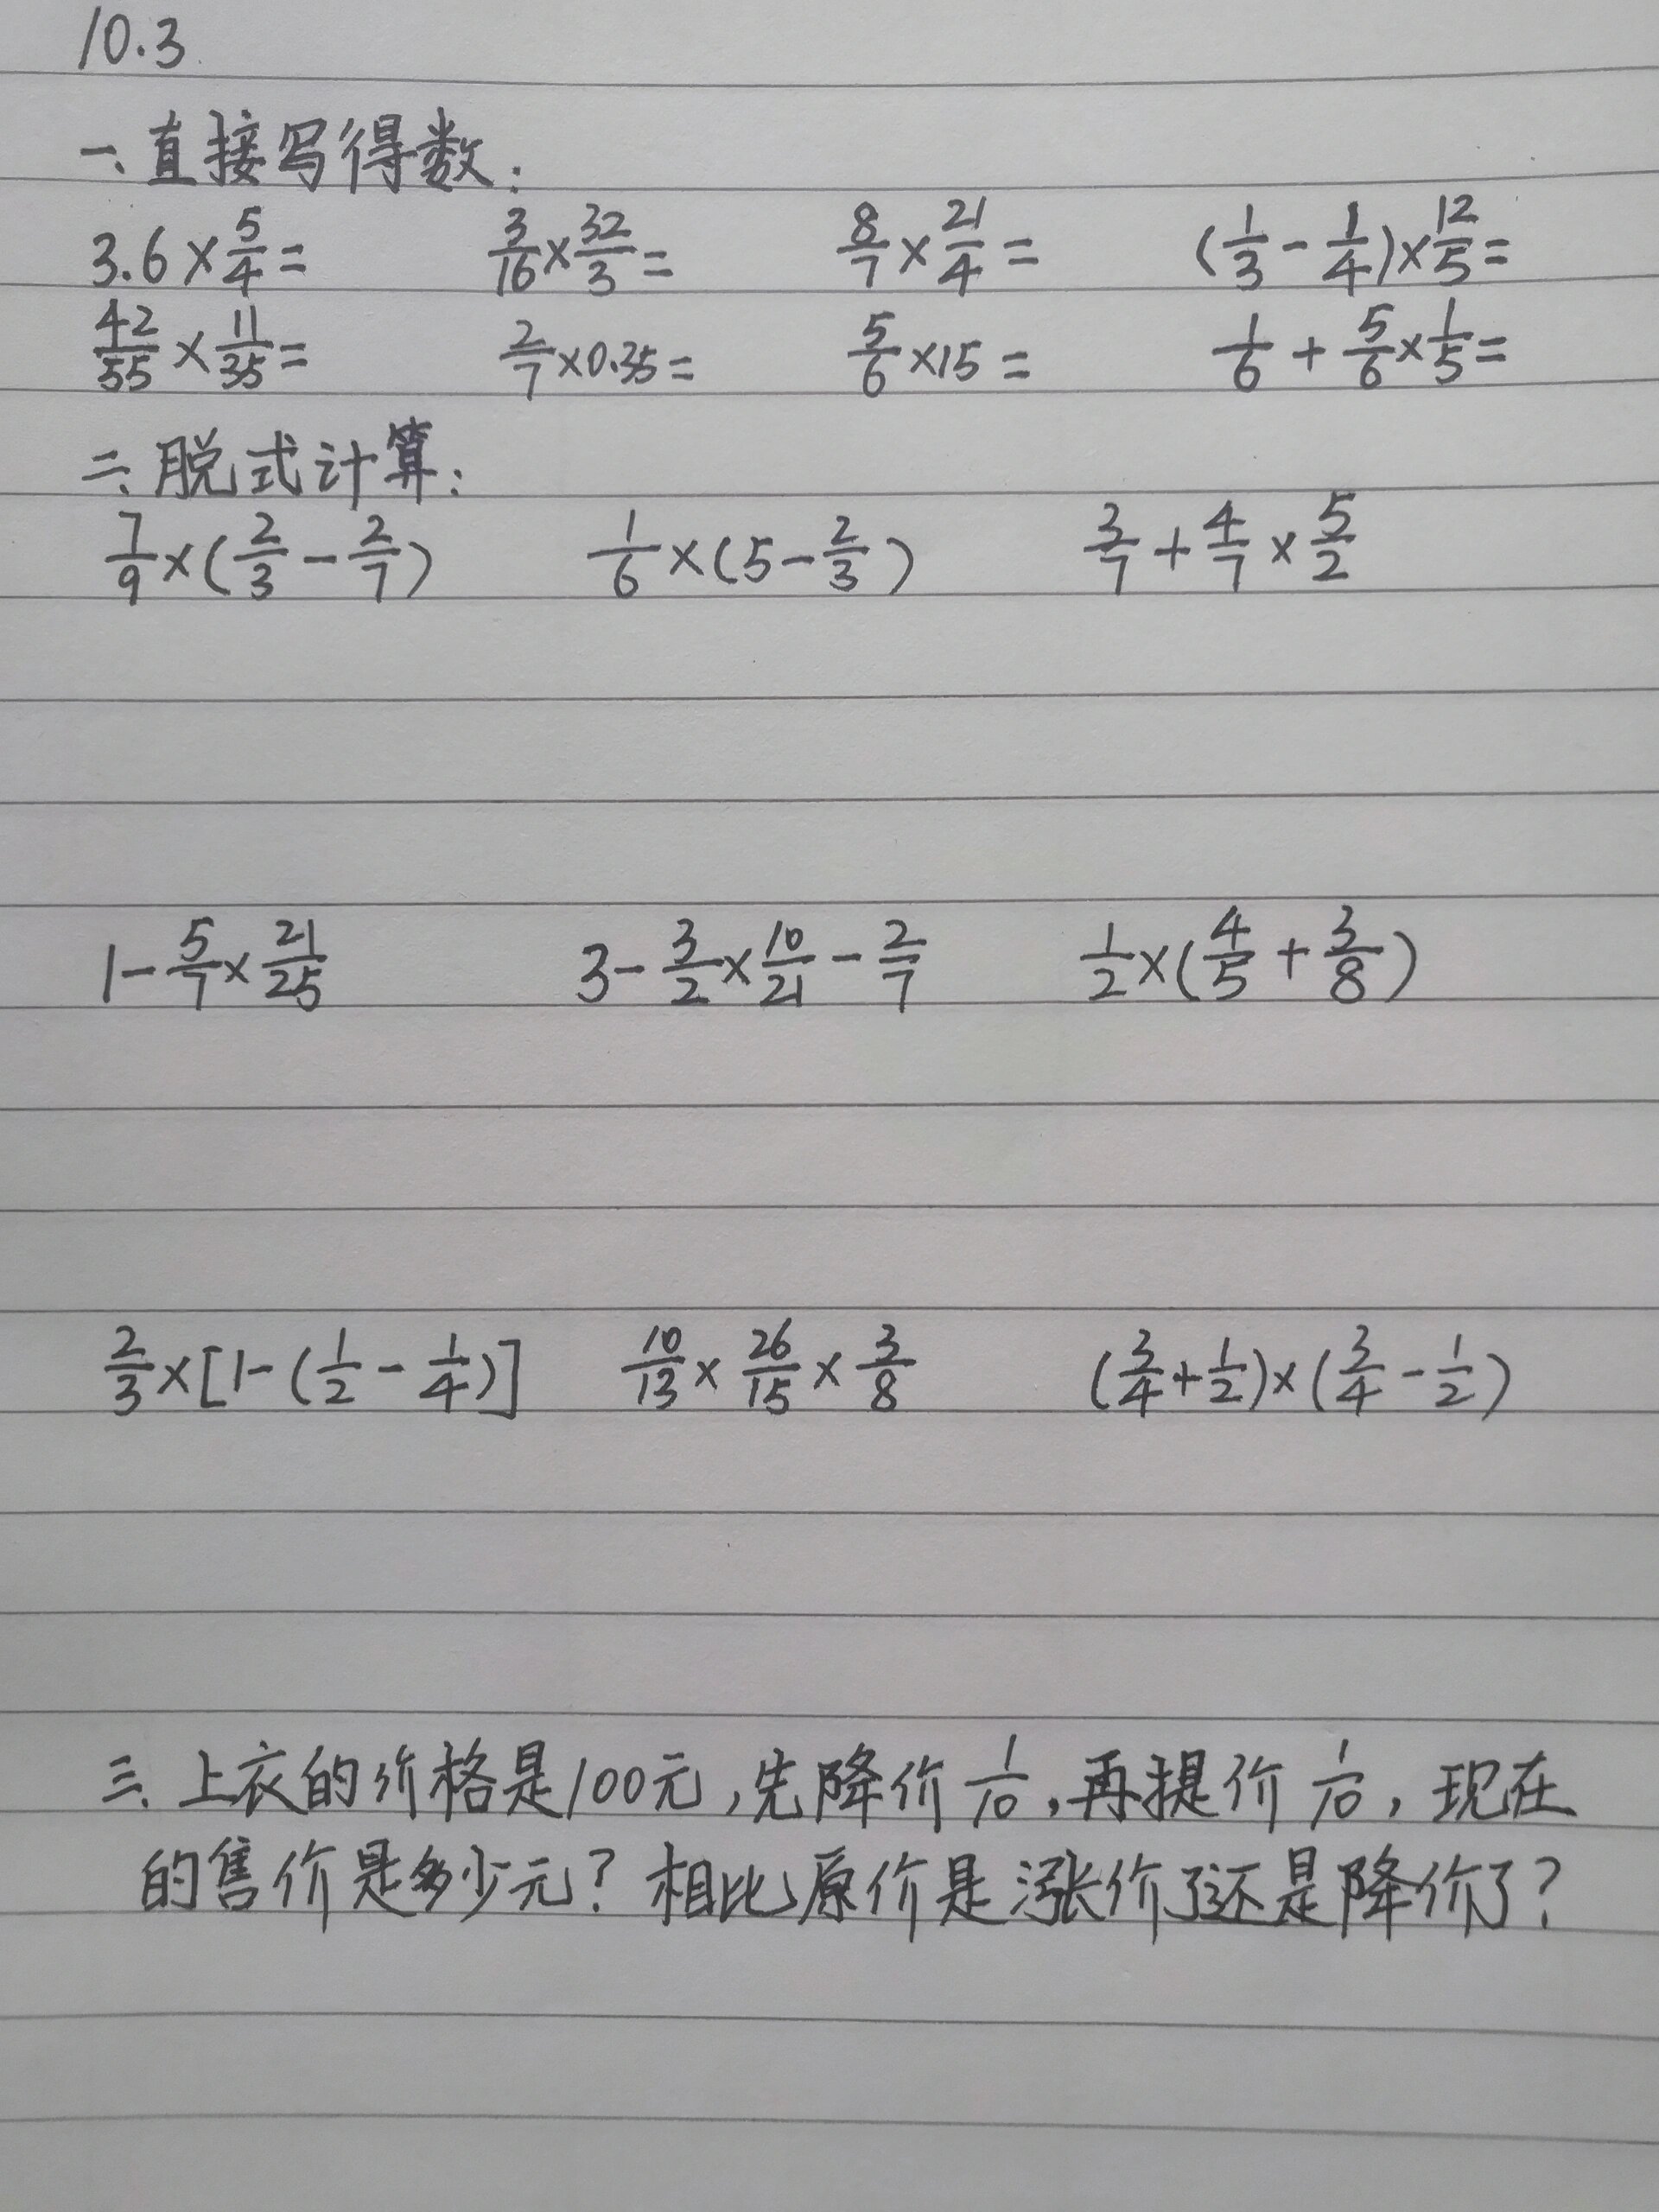 10.3
一、直接写得数：
3.6×5/4= 3/16×32/3= 8/7×21/4= (1/3-1/4)×12/5=
42/55×11/35= 2/7×0.35= 5/6×15= 1/6+5/6×1/5=
二、脱式计算：
7/9×(2/3-2/7) 1/6×(5-2/3) 3/7+4/7×5/2
1-5/7×21/25 3-3/2×10/21-2/7 1/2×(4/5+3/8)
2/3×[1-(1/2-1/4)] 10/13×26/15×3/8 (3/4+1/2)×(3/4-1/2)
三、上衣的价格是100元,先降价1/10,再提价1/10,现在
的售价是多少元?相比原价是涨价了还是降价了?